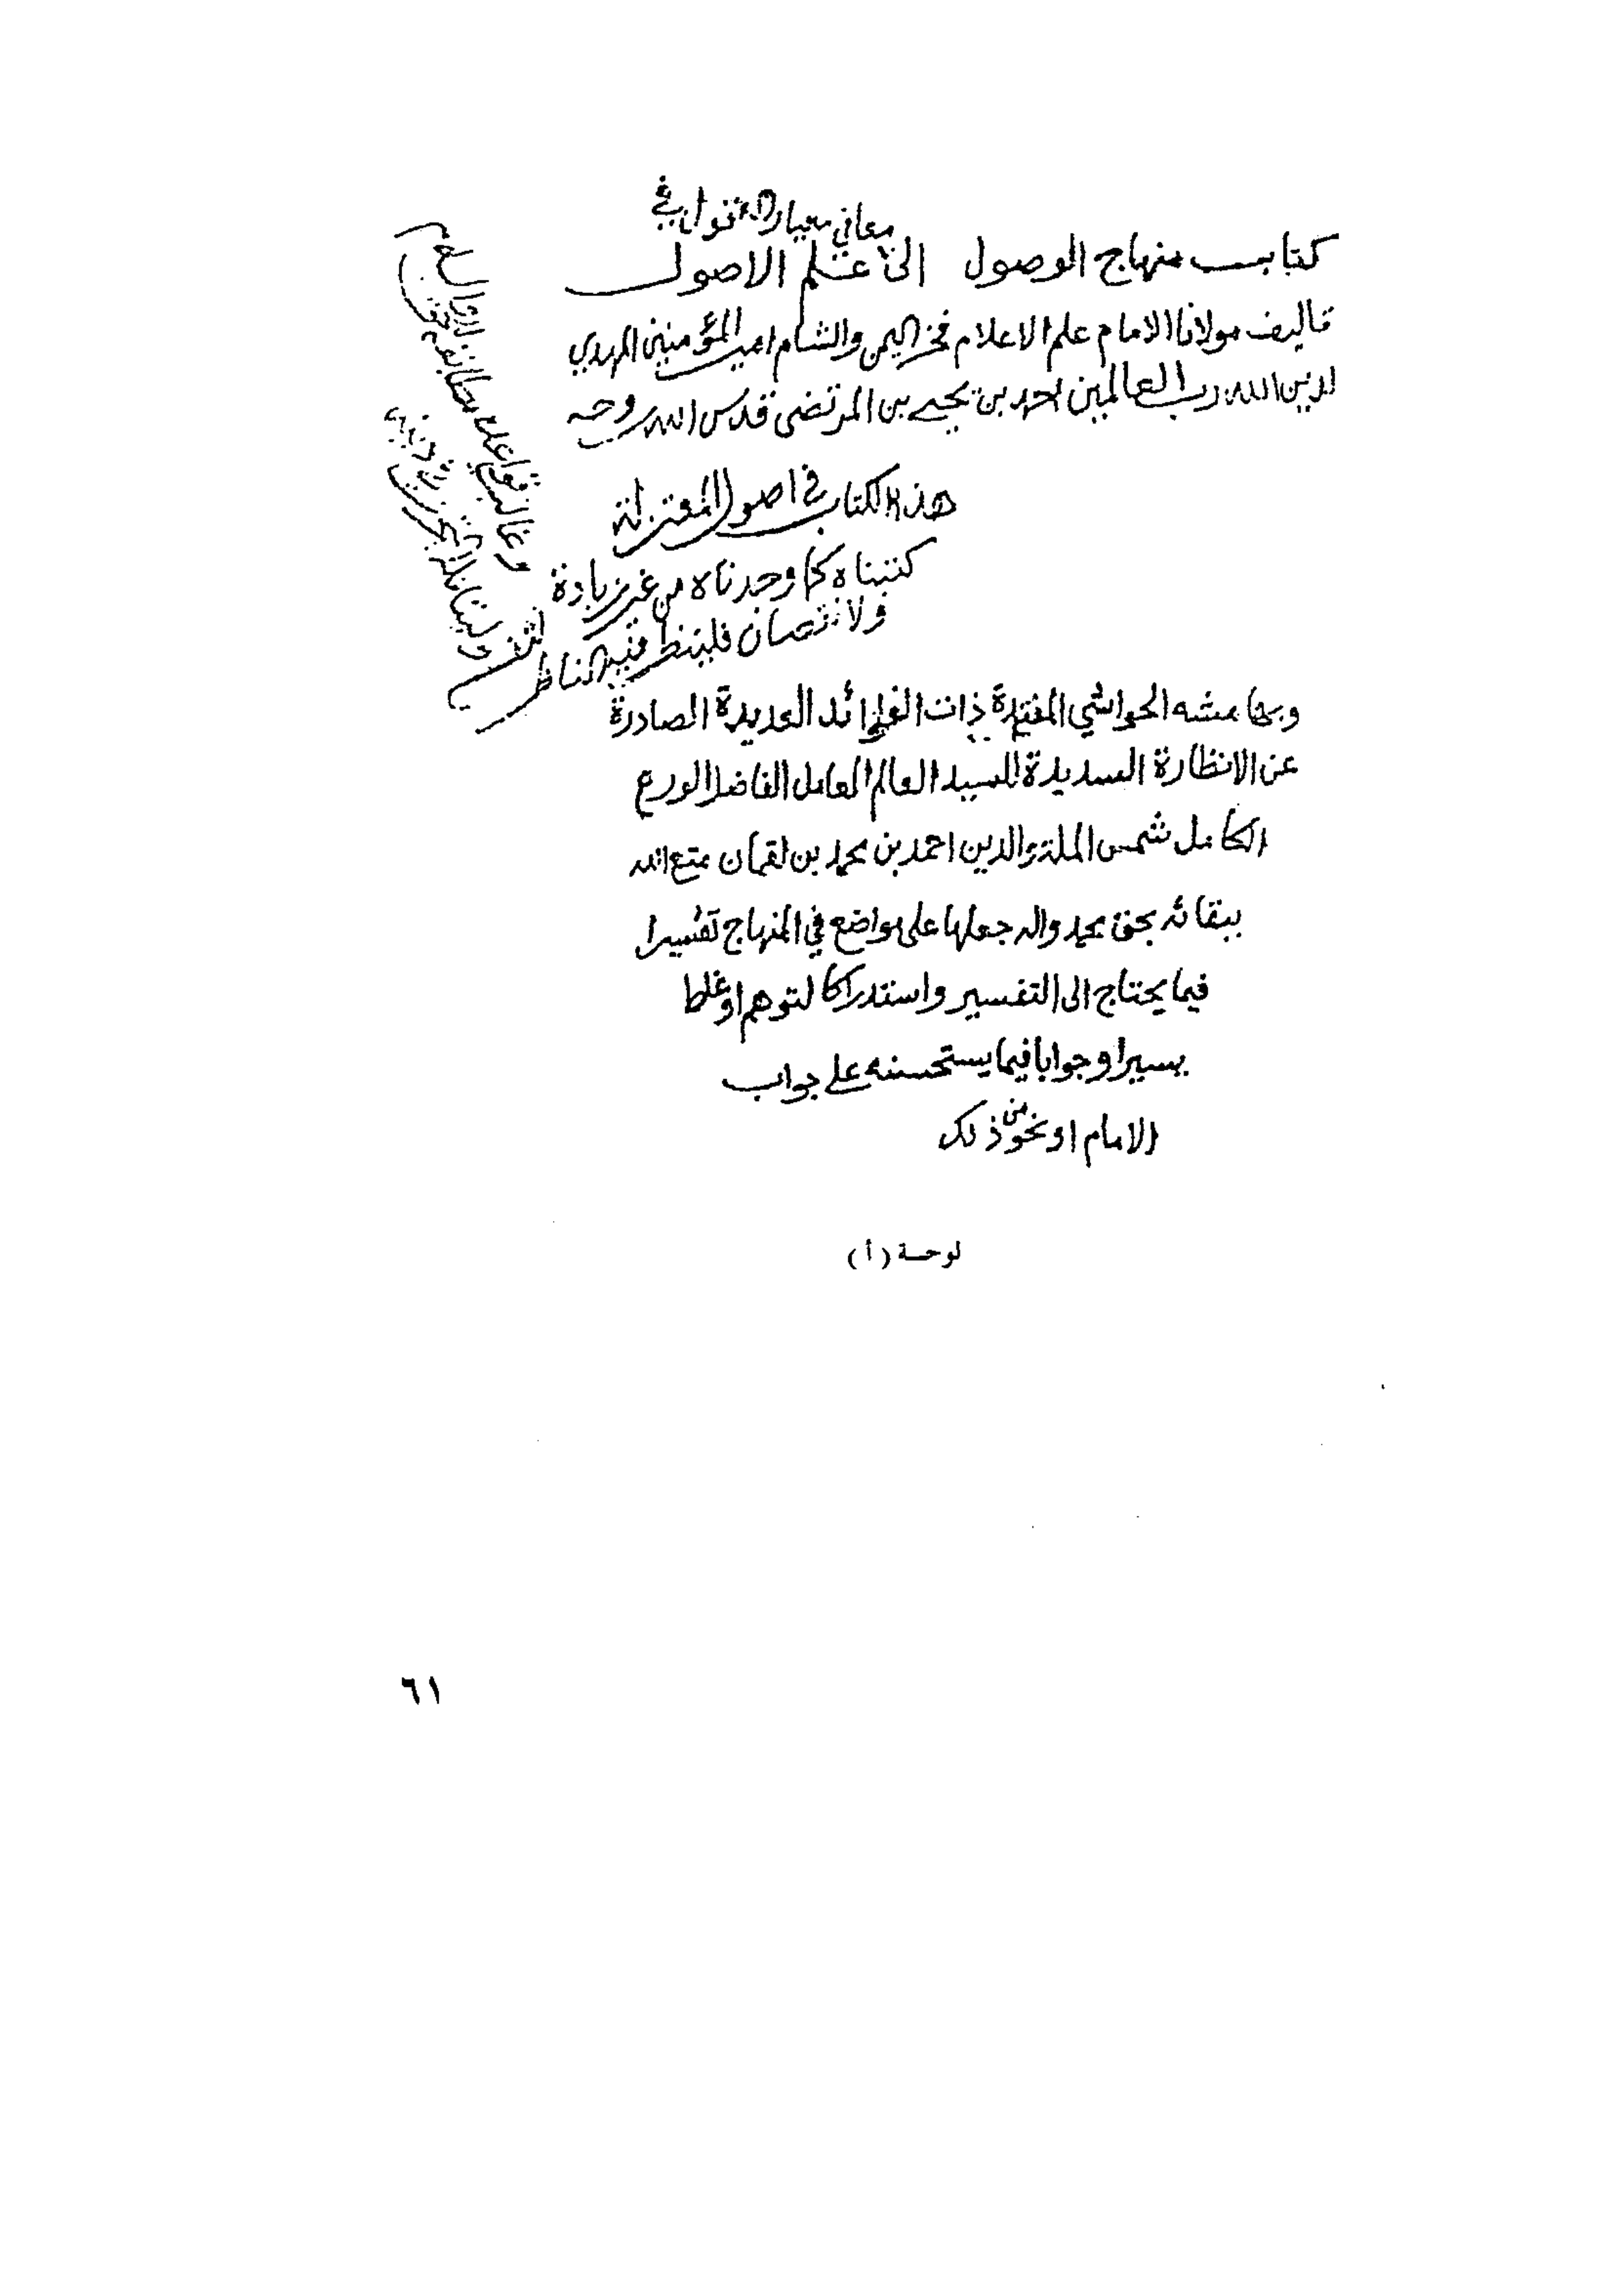 معاني معيار العقول في
كتاب منهاج الوصول الى علم الاصول
تاليف مولانا الامام علم الاعلام فخر اليمن والشام امير المؤمنين المهدي
لدين الله رب العالمين احمد بن يحيى بن المرتضى قدس الله روحه
هذا الكتاب في اصول المعتزلة
كتبناه كما وجدناه من غير زيادة
ولا نقصان فلينظر فيه الناظر
وبهامشه الحواشي المفيدة ذات الفوائد العديدة الصادرة
عن الانظارة السديدة للسيد العالم العامل الفاضل الورع
الكامل شمس الملة والدين احمد بن محمد بن لقمان متع الله
ببقائه بحق محمد واله جعلها على مواضع في المنهاج تفسيرا
فيما يحتاج الى التفسير واستدراكا لتوهم او غلط
يسيرا وجوابا فيما يستحسنه على جواب
الامام او نحو من ذلك
لوحة (أ)
٦١